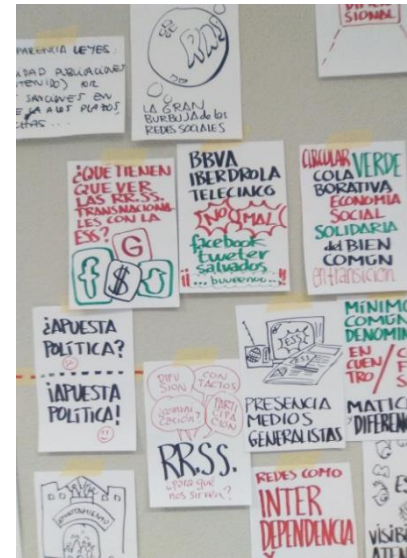 PARENCIA LEYES:
IDAD PUBLICACIONES
TENIDO) POR
SANCIONES EN
A LOS PLAZOS,
LA GRAN
BURBUJA de las
REDES SOCIALES
SIONAL
¿QUE TIENEN
QUE VER
LAS RR.SS.
TRANSNACIONA-
LES CON LA
ESS?
f G
$
BBVA
IBERDROLA
TELECINCO
¡NO MAL!
facebook
tweter
salvados
CIRCULAR VERDE
COLA
BORATIVA
ECONOMÍA
SOCIAL
SOLIDARIA
del BIEN
COMÚN
en transición
¿APUESTA
POLÍTICA?
¡APUESTA
POLÍTICA!
DIFU
SIÓN
CON
TACTOS
¿COMUNI
CACIÓN?
PARTI
CIPA
CIÓN
RR.SS.
¿para qué
nos sirven?
¡ESS!
PRESENCIA
MEDIOS
GENERALISTAS
MÍNIMO
COMÚN
DENOMIN
EN
CUEN
TRO /
MATIC
DIFEREN
AYUNTAMIENTO
REDES COMO
INTER
DEPENDENCIA
Y
ES
VISIBI